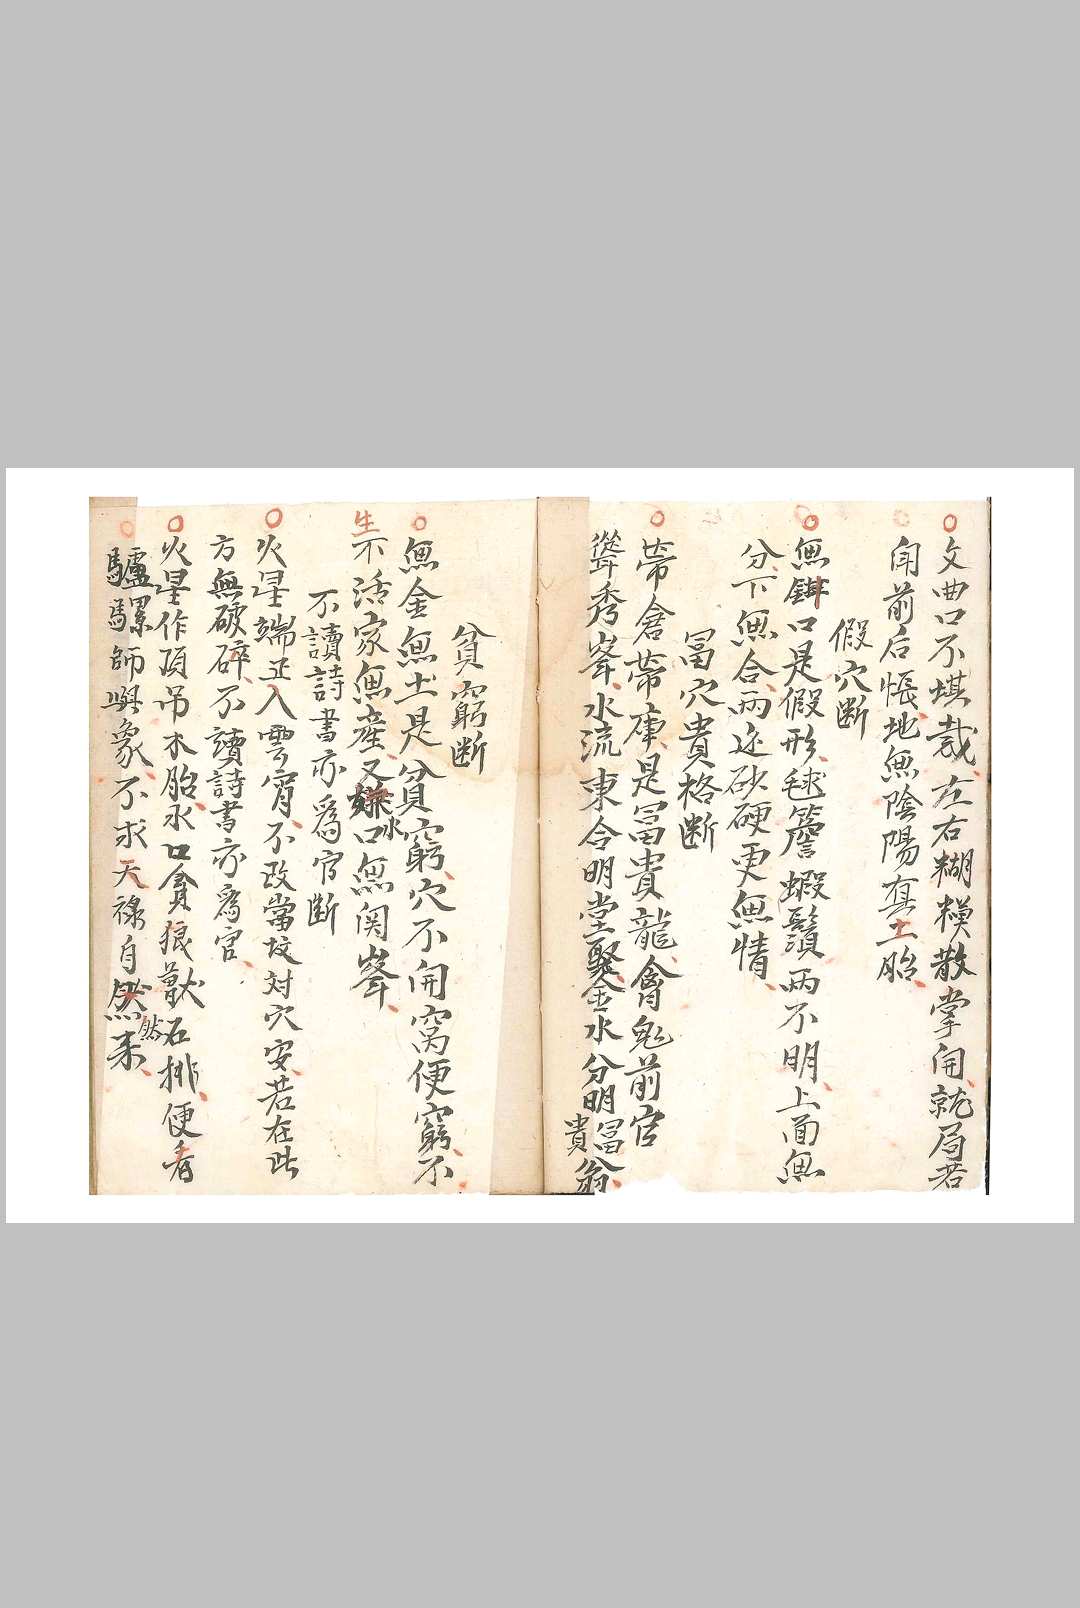 文曲口不堪裁左右糊糢散掌開就局若
闻前后悵地無陰陽真土胎
假穴断
無鉗口是假形毬簷蝦鬚両不明上面無
分下無合両边砂硬更無情
冨穴貴格断
帶倉帶庫是冨貴龍禽鬼前官
聳秀峯水流東合明堂聚金水分明冨貴翁
貧窮断
無金無土是貧窮穴不開窩便窮不
生不活家無産又嫌水口無関峯
不讀詩書亦爲官断
火星端正入雲霄不改當坟対穴安若在此
方無破碎不讀詩書亦爲官
火星作頂吊木胎水口禽狼獣石排便有
驢騾師與象不求天祿自然来